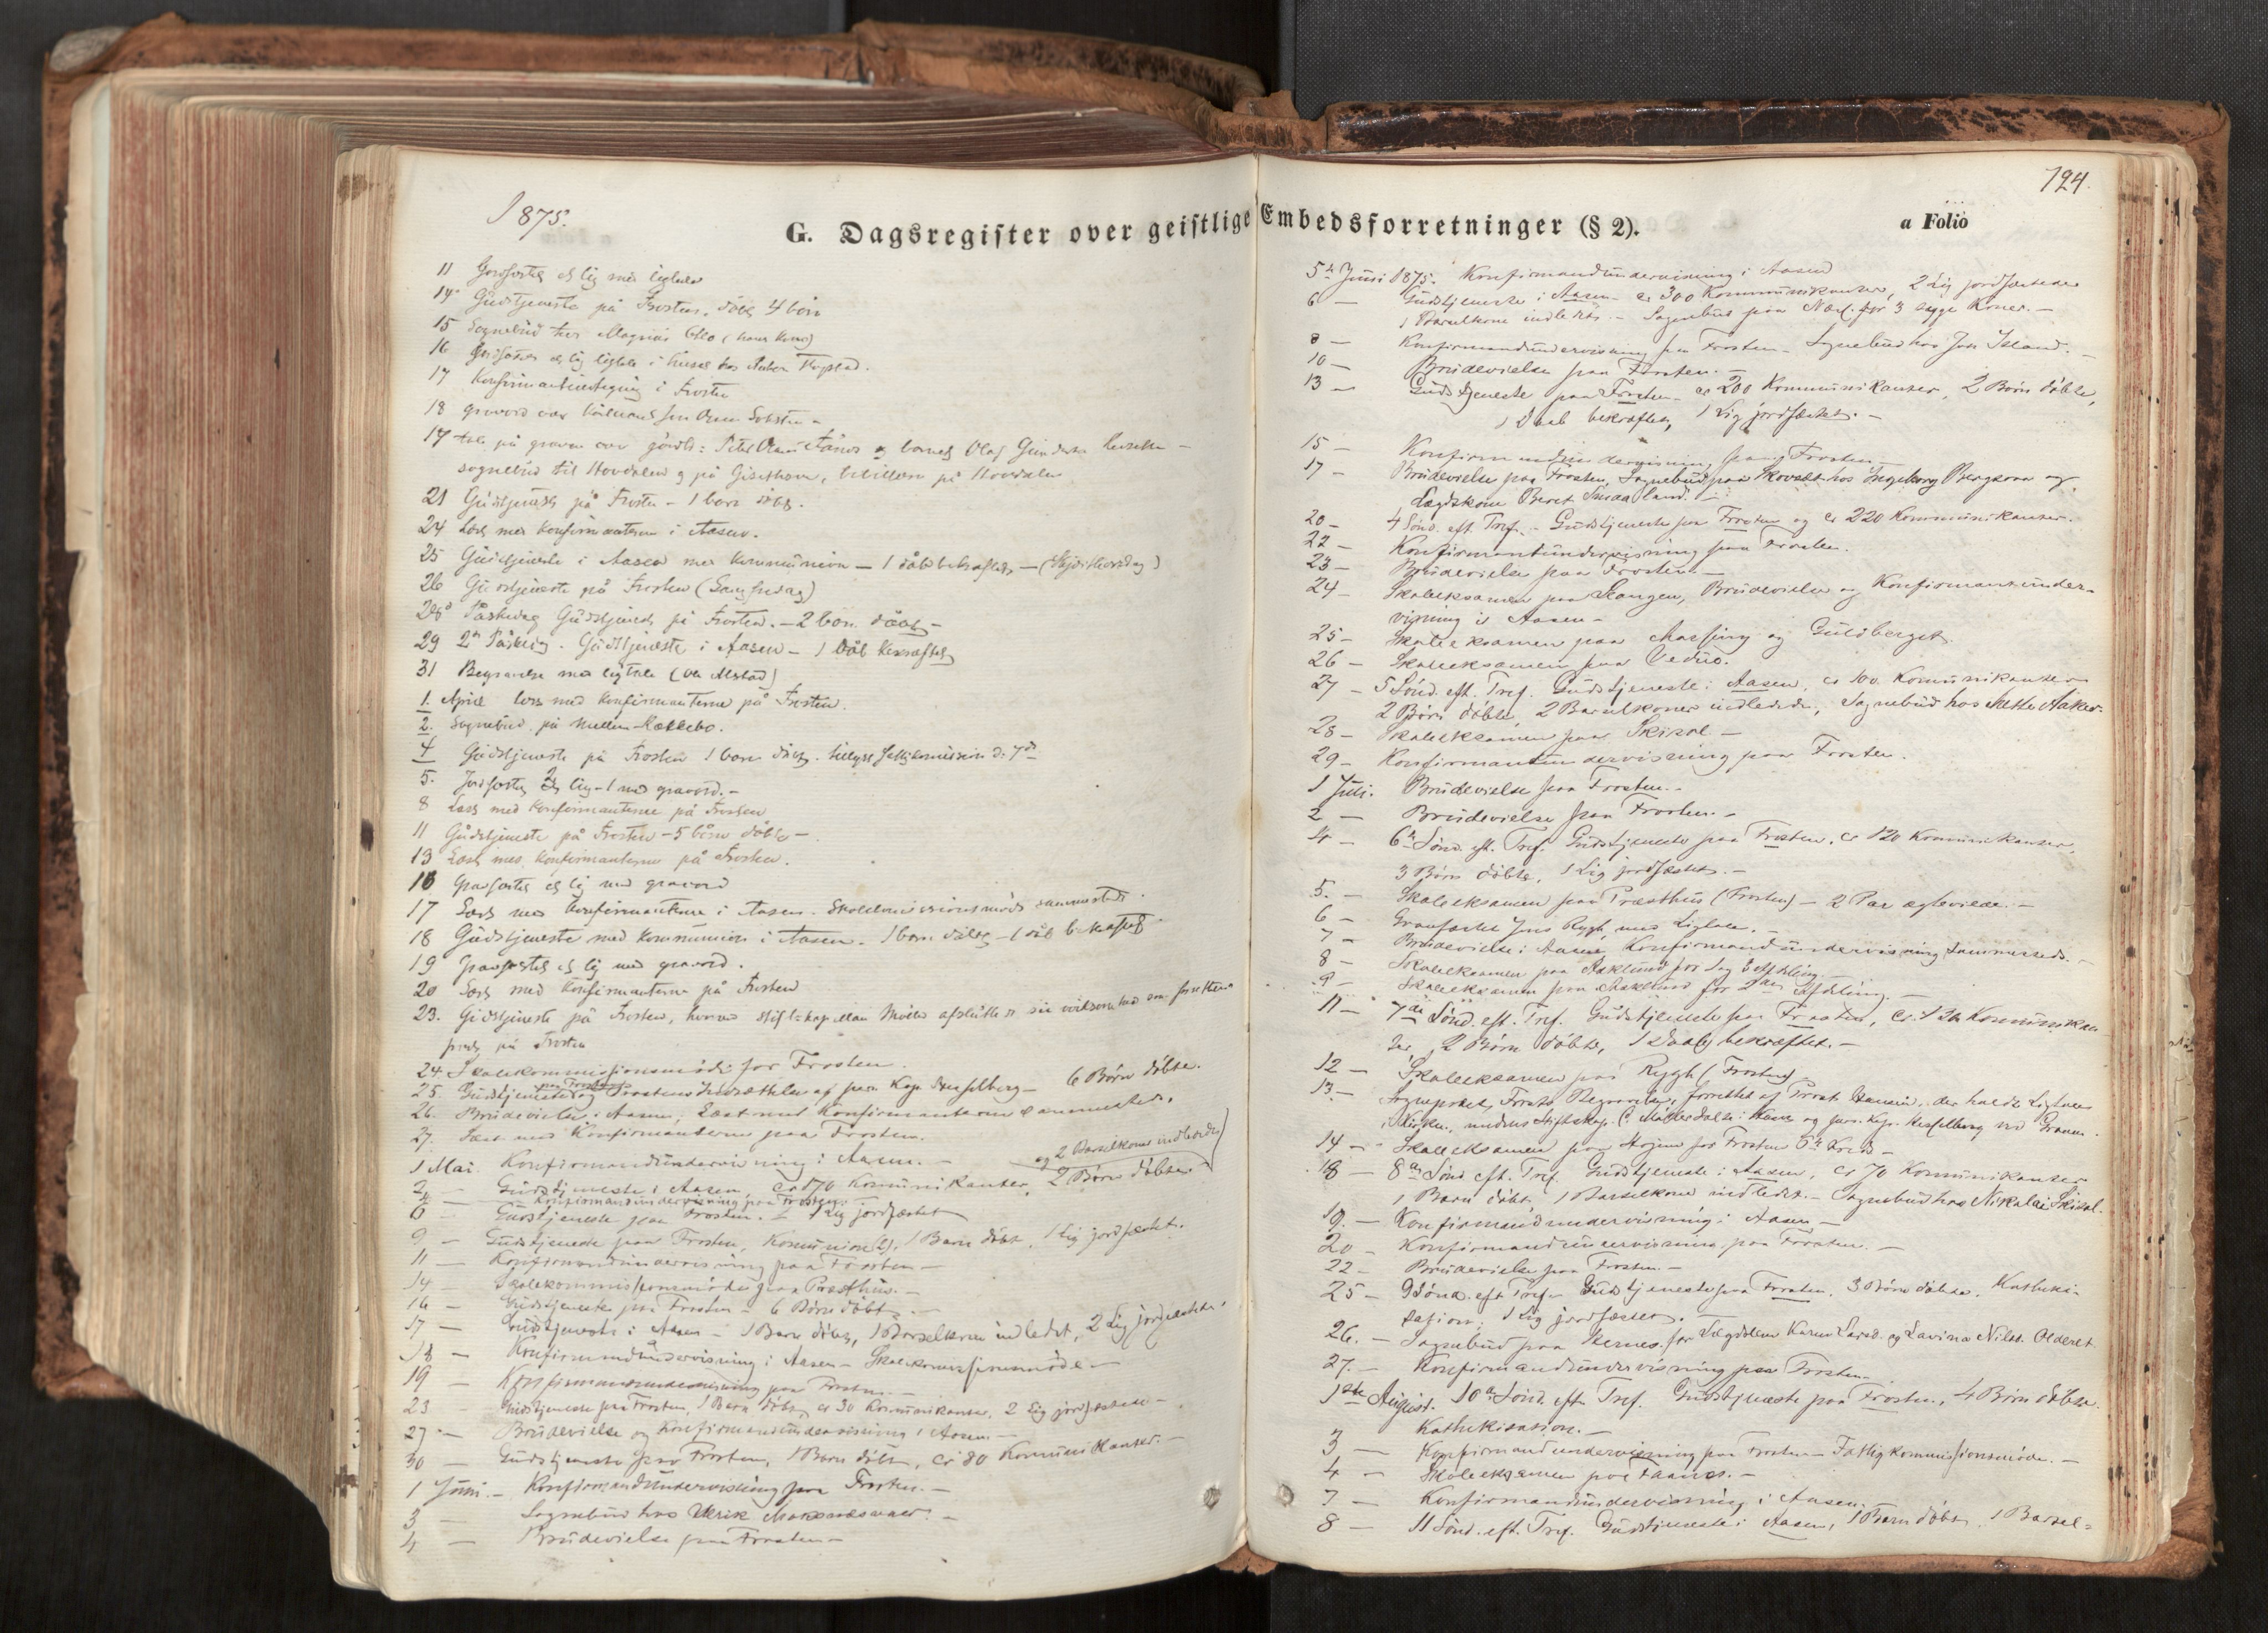 1875.
G. Dagsregister over geistlige Embedsforretninger (§ 2).
a Folio
124.
11 lig med ligtale
14 Gudstjeneste på Frosten, döbt 4 börn
15 Sognebud hos Magnus
16 lig ligtale i huset hos
17 i Frosten
18 gravord over
17 tale på graven over og barnet Olaf
sognebud til Hovdalen og på
21 Gudstjeneste på Frosten - 1 barn döbt.
24 Læst med konfirmanterne i Aasen.
25 Gudstjeneste i Aasen med kommunion - 1 dåb bekræftet - (Skjærthorsdag)
26 Gudstjeneste på Frosten (Langfredag)
28d Påskedag Gudstjeneste på Frosten. - 2 börn döbt -
29 2n Påskedag. Gudstjeneste i Aasen - 1 Dåb bekræftet
31 Begravelse med ligtale (Ole Alstad)
1. April læst med konfirmanterne på Frosten.
2. Sognebud på
4 Gudstjeneste på Frosten 1 barn döbt.
5. Jordfæstet 2 lig - 1 med gravord. -
8 Læst med konfirmanterne på Frosten
11 Gudstjeneste på Frosten - 5 börn döbte -
13 Læst med konfirmanterne på Frosten.
16 Gravfæstet et lig med gravord
17 Læst med konfirmanterne i Aasen. Skolekommissionsmöde sammesteds.
18 Gudstjeneste med kommunion i Aasen. 1 barn döbt - 1 dåb bekræftet.
19 Gravfæstet et lig med gravord.
20 Læst med konfirmanterne på Frosten
23. Gudstjeneste på Frosten, hvorved stiftskapellan Möller afsluttede sin virksomhed som
på Frosten
24. Skolekommissionsmöde for Frosten.
25. Gudstjeneste paa Frosten af pers. Kap. Hesselberg - 6 Börn döbte.
26. Brudevielse i Aasen, Læst med Konfirmanterne sammesteds.
27. Læst med Konfirmanterne paa Frosten.
1 Mai. Konfirmandundervisning i Aasen. -
og 2 Barselkoner indledede
2 - Gudstjeneste i Aasen, ca 170 Kommunikanter, 2 Börn döbte.
4 - Konfirmandundervisning paa Frosten.
6 - Gudstjeneste paa Frosten. - 1 Lig jordfæstet
9 - Gudstjeneste paa Frosten, Kommunion, 1 Barn döbt, 1 Lig jordfæstet.
11 - Konfirmandundervisning paa Frosten -
14 - Skolekommissionsmöde paa Præsthus. -
16 - Gudstjeneste paa Frosten - 6 Börn döbt. -
17 - Gudstjeneste i Aasen - 1 Barn döbt, 1 Barselkone indledet, 2 Lig jordfæstet.
18 - Konfirmandundervisning i Aasen - Skolekommissionsmöde -
19 - Konfirmandundervisning paa Frosten. -
23 - Gudstjeneste paa Frosten, 1 Barn döbt, ca 30 Kommunikanter, 2 Lig jordfæstede -
27 - Brudevielse og Konfirmandundervisning i Aasen. -
30 - Gudstjeneste paa Frosten, 1 Barn döbt, ca 80 Kommunikanter. -
1 Juni. - Konfirmandundervisning paa Frosten. -
3 - Sognebud hos Ulrik -
4 - Brudevielse paa Frosten -
5te Juni 1875. Konfirmandundervisning i Aasen
6 - Gudstjeneste i Aasen - ca 300 Kommunikanter, 2 Lig jordfæstede
1 Barselkone indledet. - Sognebud paa for 3 syge Koner. -
8 - Konfirmandundervisning paa Frosten - Sognebud hos Jon -
10 - Brudevielse paa Frosten. -
13 - Gudstjeneste paa Frosten - ca 200 Kommunikanter, 2 Börn döbte,
1 Daab bekræftet, 1 Lig jordfæstet. -
15 - Konfirmandundervisning paa Frosten -
17 - Brudevielse paa Frosten, Sognebud paa hos Ingeborg og
Lægdskone Beret
20 - 4 Sönd. eft. Tref. - Gudstjeneste paa Frosten og ca 220 Kommunikanter.
22 - Konfirmantundervisning paa Frosten.
23 - Brudevielse paa Frosten. -
24 - Skoleeksamen paa Vangen, Brudevielse og Konfirmantunder-
visning i Aasen -
25 - Skoleeksamen paa og Guldberget.
26 - Skoleeksamen paa Vedu.
27 - 5 Sönd. eft. Tref. Gudstjeneste i Aasen, ca 100 Kommunikanter
2 Börn döbte, 2 Barselkoner indledede, Sognebud hos
28 - Skoleeksamen paa -
29 - Konfirmantundervisning paa Frosten.
1 Juli. Brudevielse paa Frosten. -
2 - Brudevielse paa Frosten. -
4 - 6te Sönd. eft. Tref. Gudstjeneste paa Frosten, ca 120 Kommunikanter,
3 Börn döbte, 1 Lig jordfæstet. -
5. - Skoleeksamen paa Præsthus (Frosten) - 2 Par ægteviede. -
6 - Gravfæstet Jens Rygh med Ligtale. -
7 - Brudevielse i Aasen, Konfirmandundervisning sammesteds. -
8 - Skoleeksamen paa for 1ste Afdeling. -
9 - Skoleeksamen paa for 2den Afdeling. -
11 - 7de Sönd. eft. Tref. Gudstjeneste paa Frosten, ca. 120 Kommunikan
ter, 2 Börn döbte, 1 Daab bekræftet. -
12 - Skoleeksamen paa Rygh (Frosten) -
13. - Sognepræst Begravelse, forrettet af Provst der holdt Ligtalen
i Kirken, medens Stiftskap. C. Möller talte i og pers. Kap. Hesselberg ved Graven.
14 - Skoleeksamen paa for Frosten Kreds -
18 - 8de Sönd eft. Tref. Gudstjeneste i Aasen, ca 70 Kommunikanter
1 Barn döbt, 1 Barselkone indledet. - Sognebud hos Nikolai
19. - Konfirmandundervisning i Aasen -
20 - Konfirmandundervisning paa Frosten. -
22 - Brudevielse paa Frosten. -
25 - 9 Sönd. eft Tref. - Gudstjeneste paa Frosten, 3 Börn döbte. Katheki-
sation; 1 Lig jordfæstet. -
26. - Sognebud paa for Karen og Lavina Nilsd.
27. - Konfirmandundervisning paa Frosten.
1ste August. 10de Sönd. eft. Tref. Gudstjeneste paa Frosten, 4 Börn döbte.
Kathekisation. -
3 - Konfirmandundervisning paa Frosten - Fattigkommissionsmöde. -
4 - Skoleeksamen paa -
7 - Konfirmandundervisning i Aasen.
8 - 11 Sönd. eft. Tref. Gudstjeneste i Aasen, 1 Barn döbt, 1 Barsel=